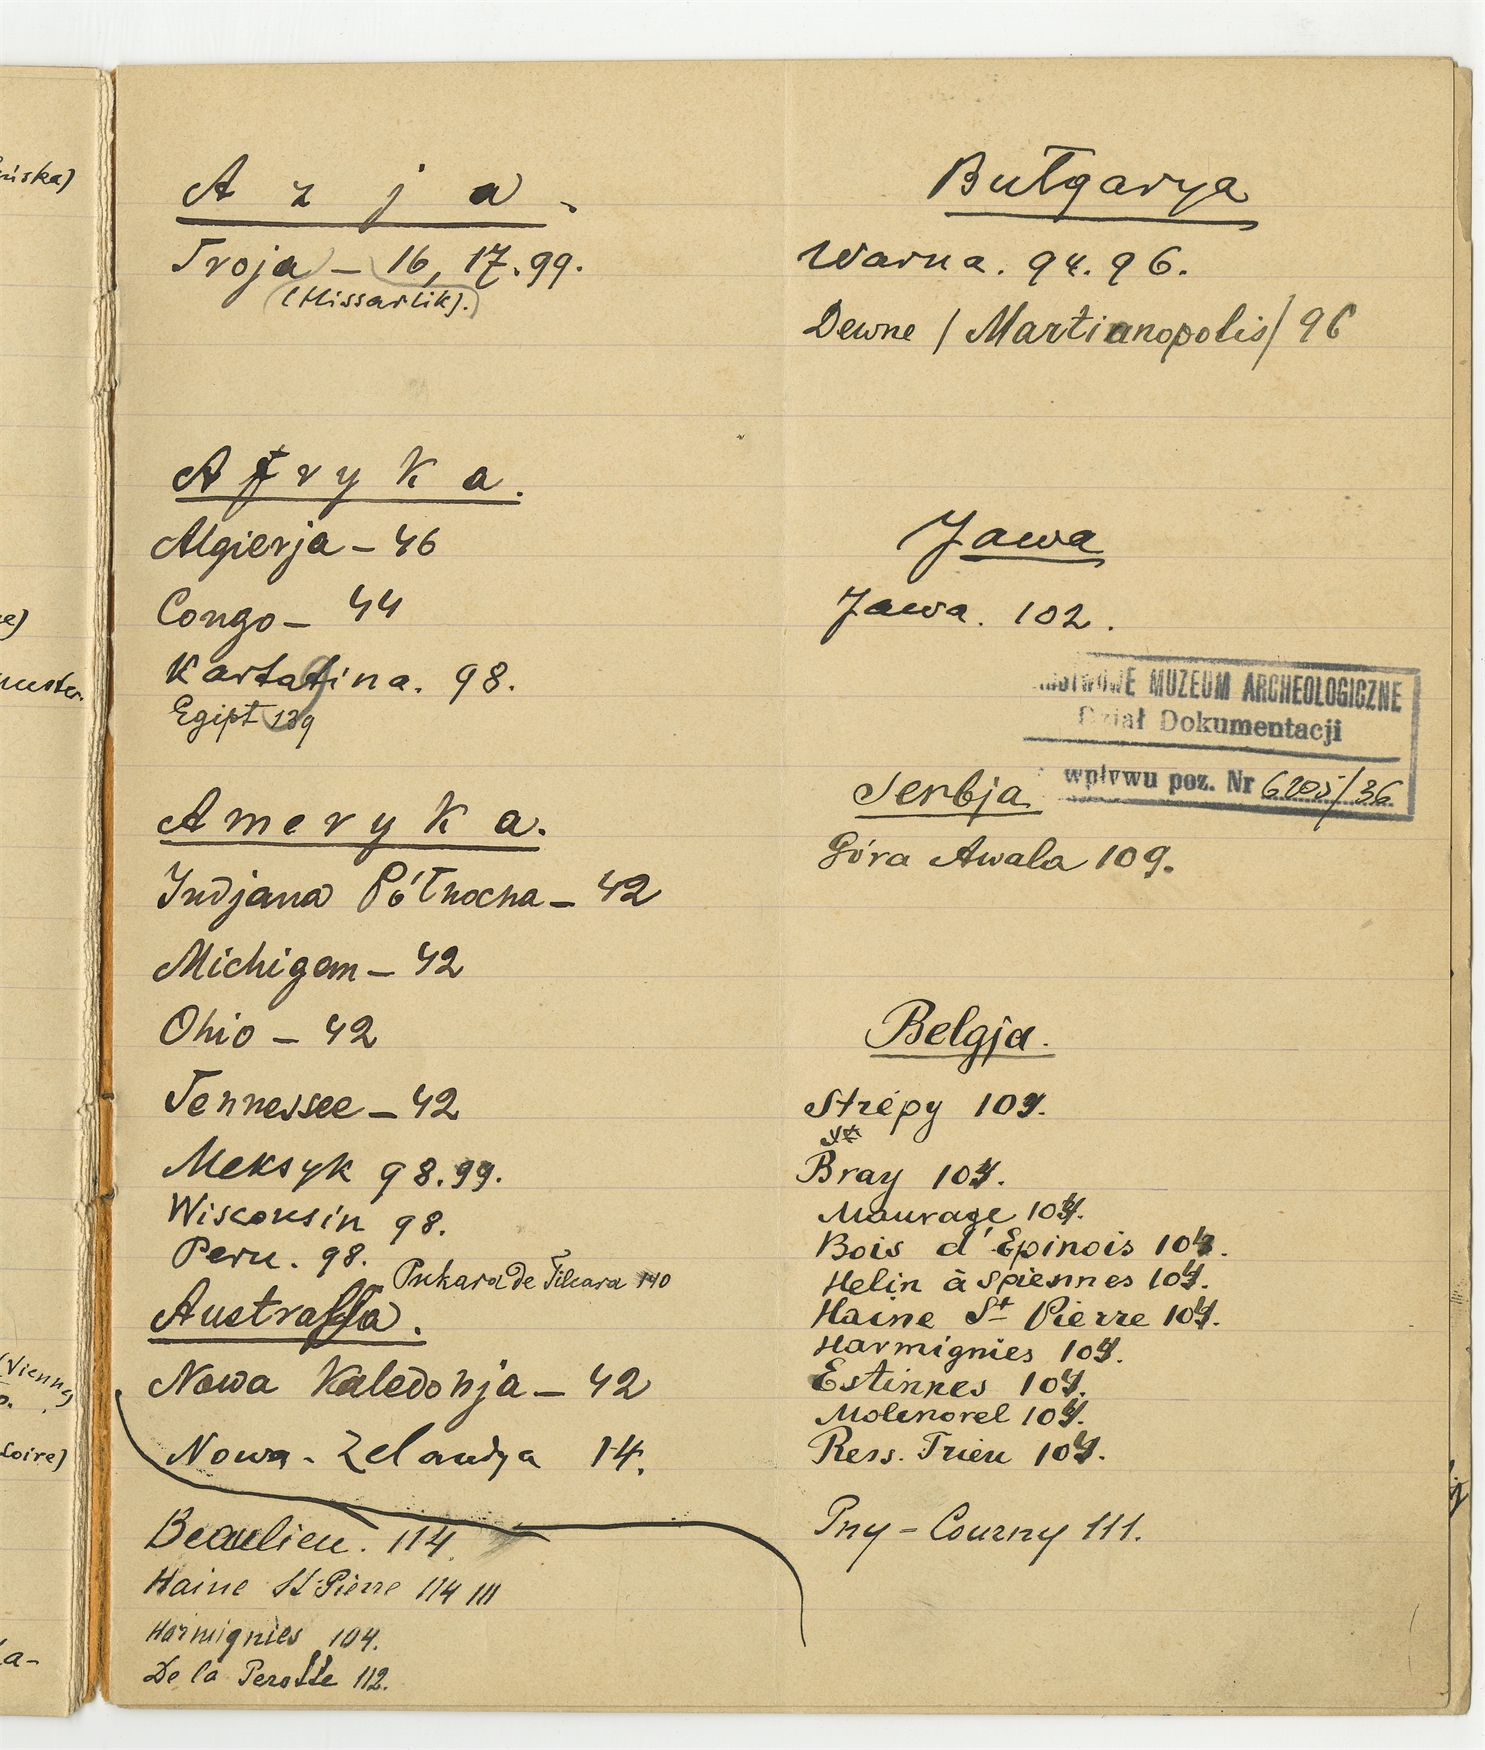 A z j a.
Troja – 16, 17. 99.
(Hissarlik).
Afryka.
Algierja – 46
Congo – 44
Kartagina. 98.
Egipt 139
Ameryka.
Indjana Północna – 42
Michigan – 42
Ohio – 42
Tennessee – 42
Meksyk 98. 99.
Wisconsin 98.
Peru. 98.
Pukara de Tilcara 140
Australja.
Nowa Kaledonja – 42
Nowa-Zelandya 14.
Beaulieu. 114.
Haine St. Pierre 114 111
Harmignies 104.
De la Perotte 112.
Bułgarya
Warna. 94. 96.
Dewne / Martianopolis / 96
Jawa
Jawa. 102.
MUZEUM ARCHEOLOGICZNE
Dział Dokumentacji
wpływu poz. Nr 6205/36
Serbja
Góra Awala 109.
Belgja.
Strépy 104.
Bray 104.
Maurage 104.
Bois d'Epinois 104.
Helin à Spiennes 104.
Haine St Pierre 104.
Harmignies 104.
Estinnes 104.
Molenorel 104.
Ress. Trieu 104.
Pny – Courny 111.
uska)
e)
(Vienne
Loire)
a-